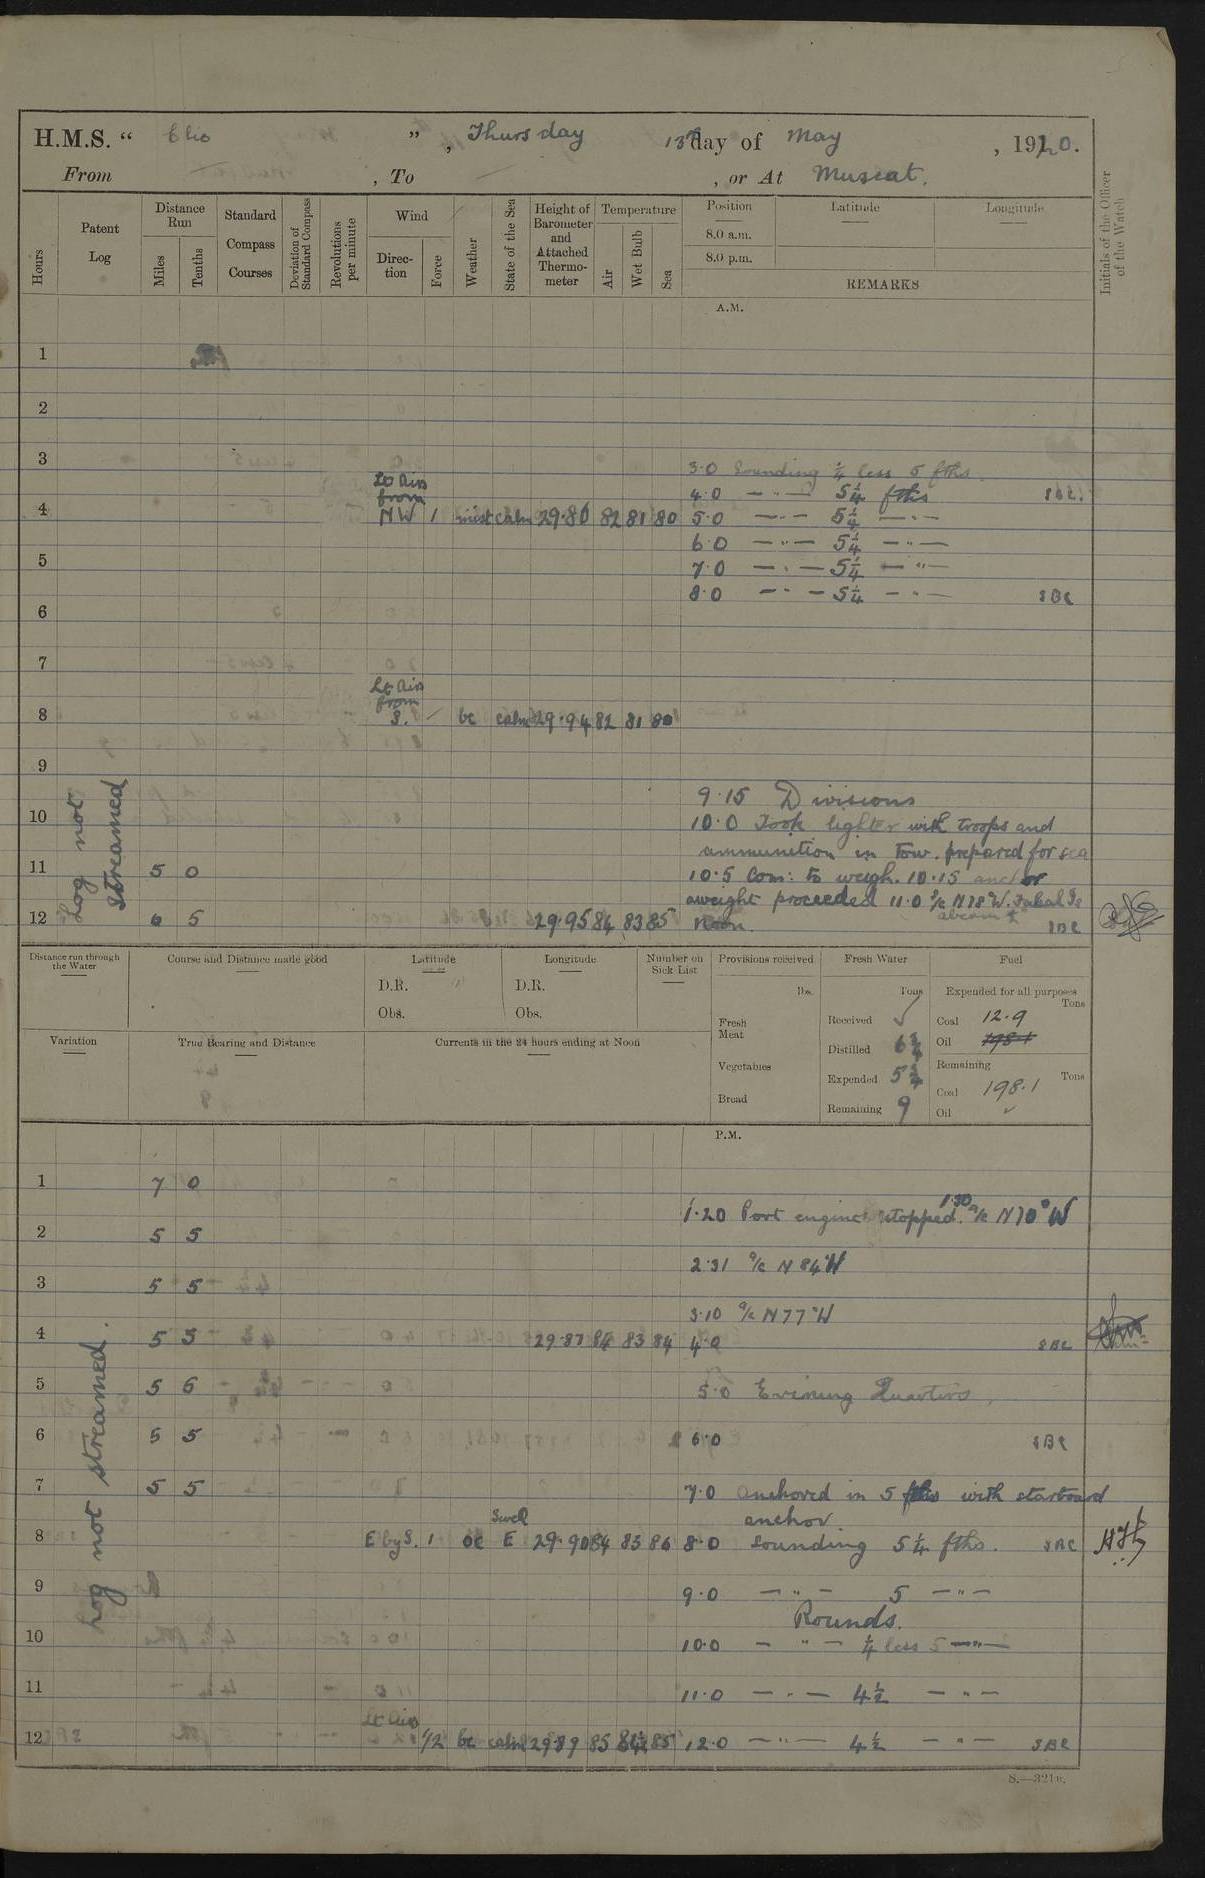 H.M.S. “ Clio ”, Thursday 13th day of May, 1920.
From , To — , or At Muscat.
Hours
Patent Log
Distance Run
Miles
Tenths
Standard Compass Courses
Deviation of Standard Compass
Revolutions per minute
Wind
Direction
Force
Weather
State of the Sea
Height of Barometer and Attached Thermometer
Temperature
Air
Wet Bulb
Sea
Position
Latitude
Longitude
8.0 a.m.
8.0 p.m.
REMARKS
Initials of the Officer of the Watch
A.M.
1
2
3
3.0 Sounding ¼ less 5 fths.
Lt Airs from
4.0 —"— 5¼ fths SBC.
4 NW 1 mist calm 29.86 82 81 80 5.0 —"— 5¼ —"—
6.0 —"— 5¼ —"—
5 7.0 —"— 5¼ —"—
8.0 —"— 5¼ —"— SBC
6
7
Lt Airs from
8 S. bc calm 29.94 82 81 80
9
Log not streamed
9.15 Divisions
10 10.0 Took lighter with troops and
ammunition in tow. prepared for sea
11 5 0 10.5 Com: to weigh. 10.15 anchor
aweigh proceeded 11.0 a/c N78°W. Fahal Is
abeam
12 6 5 29.95 84 83 85 Noon. SBC
Distance run through the Water
Course and Distance made good
Latitude
D.R.
Obs.
Longitude
D.R.
Obs.
Number on Sick List
Provisions received
lbs.
Fresh Meat
Vegetables
Bread
Fresh Water
Tons
Received ✓
Distilled 6¾
Expended 5¾
Remaining 9
Fuel
Expended for all purposes
Tons
Coal 12.9
Oil 198.1
Remaining
Tons
Coal 198.1
Oil
Variation
True Bearing and Distance
Currents in the 24 hours ending at Noon
P.M.
1 7 0
1.20 Port engine stopped. 1.30 a/c N70°W
2 5 5
2.31 a/c N84°W
3 5 5
3.10 a/c N77°W
4 5 5 29.87 84 83 84 4.0 SBC
5 5 6 5.0 Evening Quarters.
6 5 5 6.0 SBC
7 5 5 7.0 anchored in 5 fths with starboard
anchor.
Swell
8 E by S. 1 oc E 29.90 84 83 86 8.0 Sounding 5¼ fths. SBC
9 9.0 —"— 5 —"—
Rounds.
10 10.0 —"— ¼ less 5 —"—
11 11.0 —"— 4½ —"—
Lt Airs
12 1/2 bc calm 29.89 85 85 12.0 —"— 4½ —"— SBC
Log not streamed.
S.—321B.